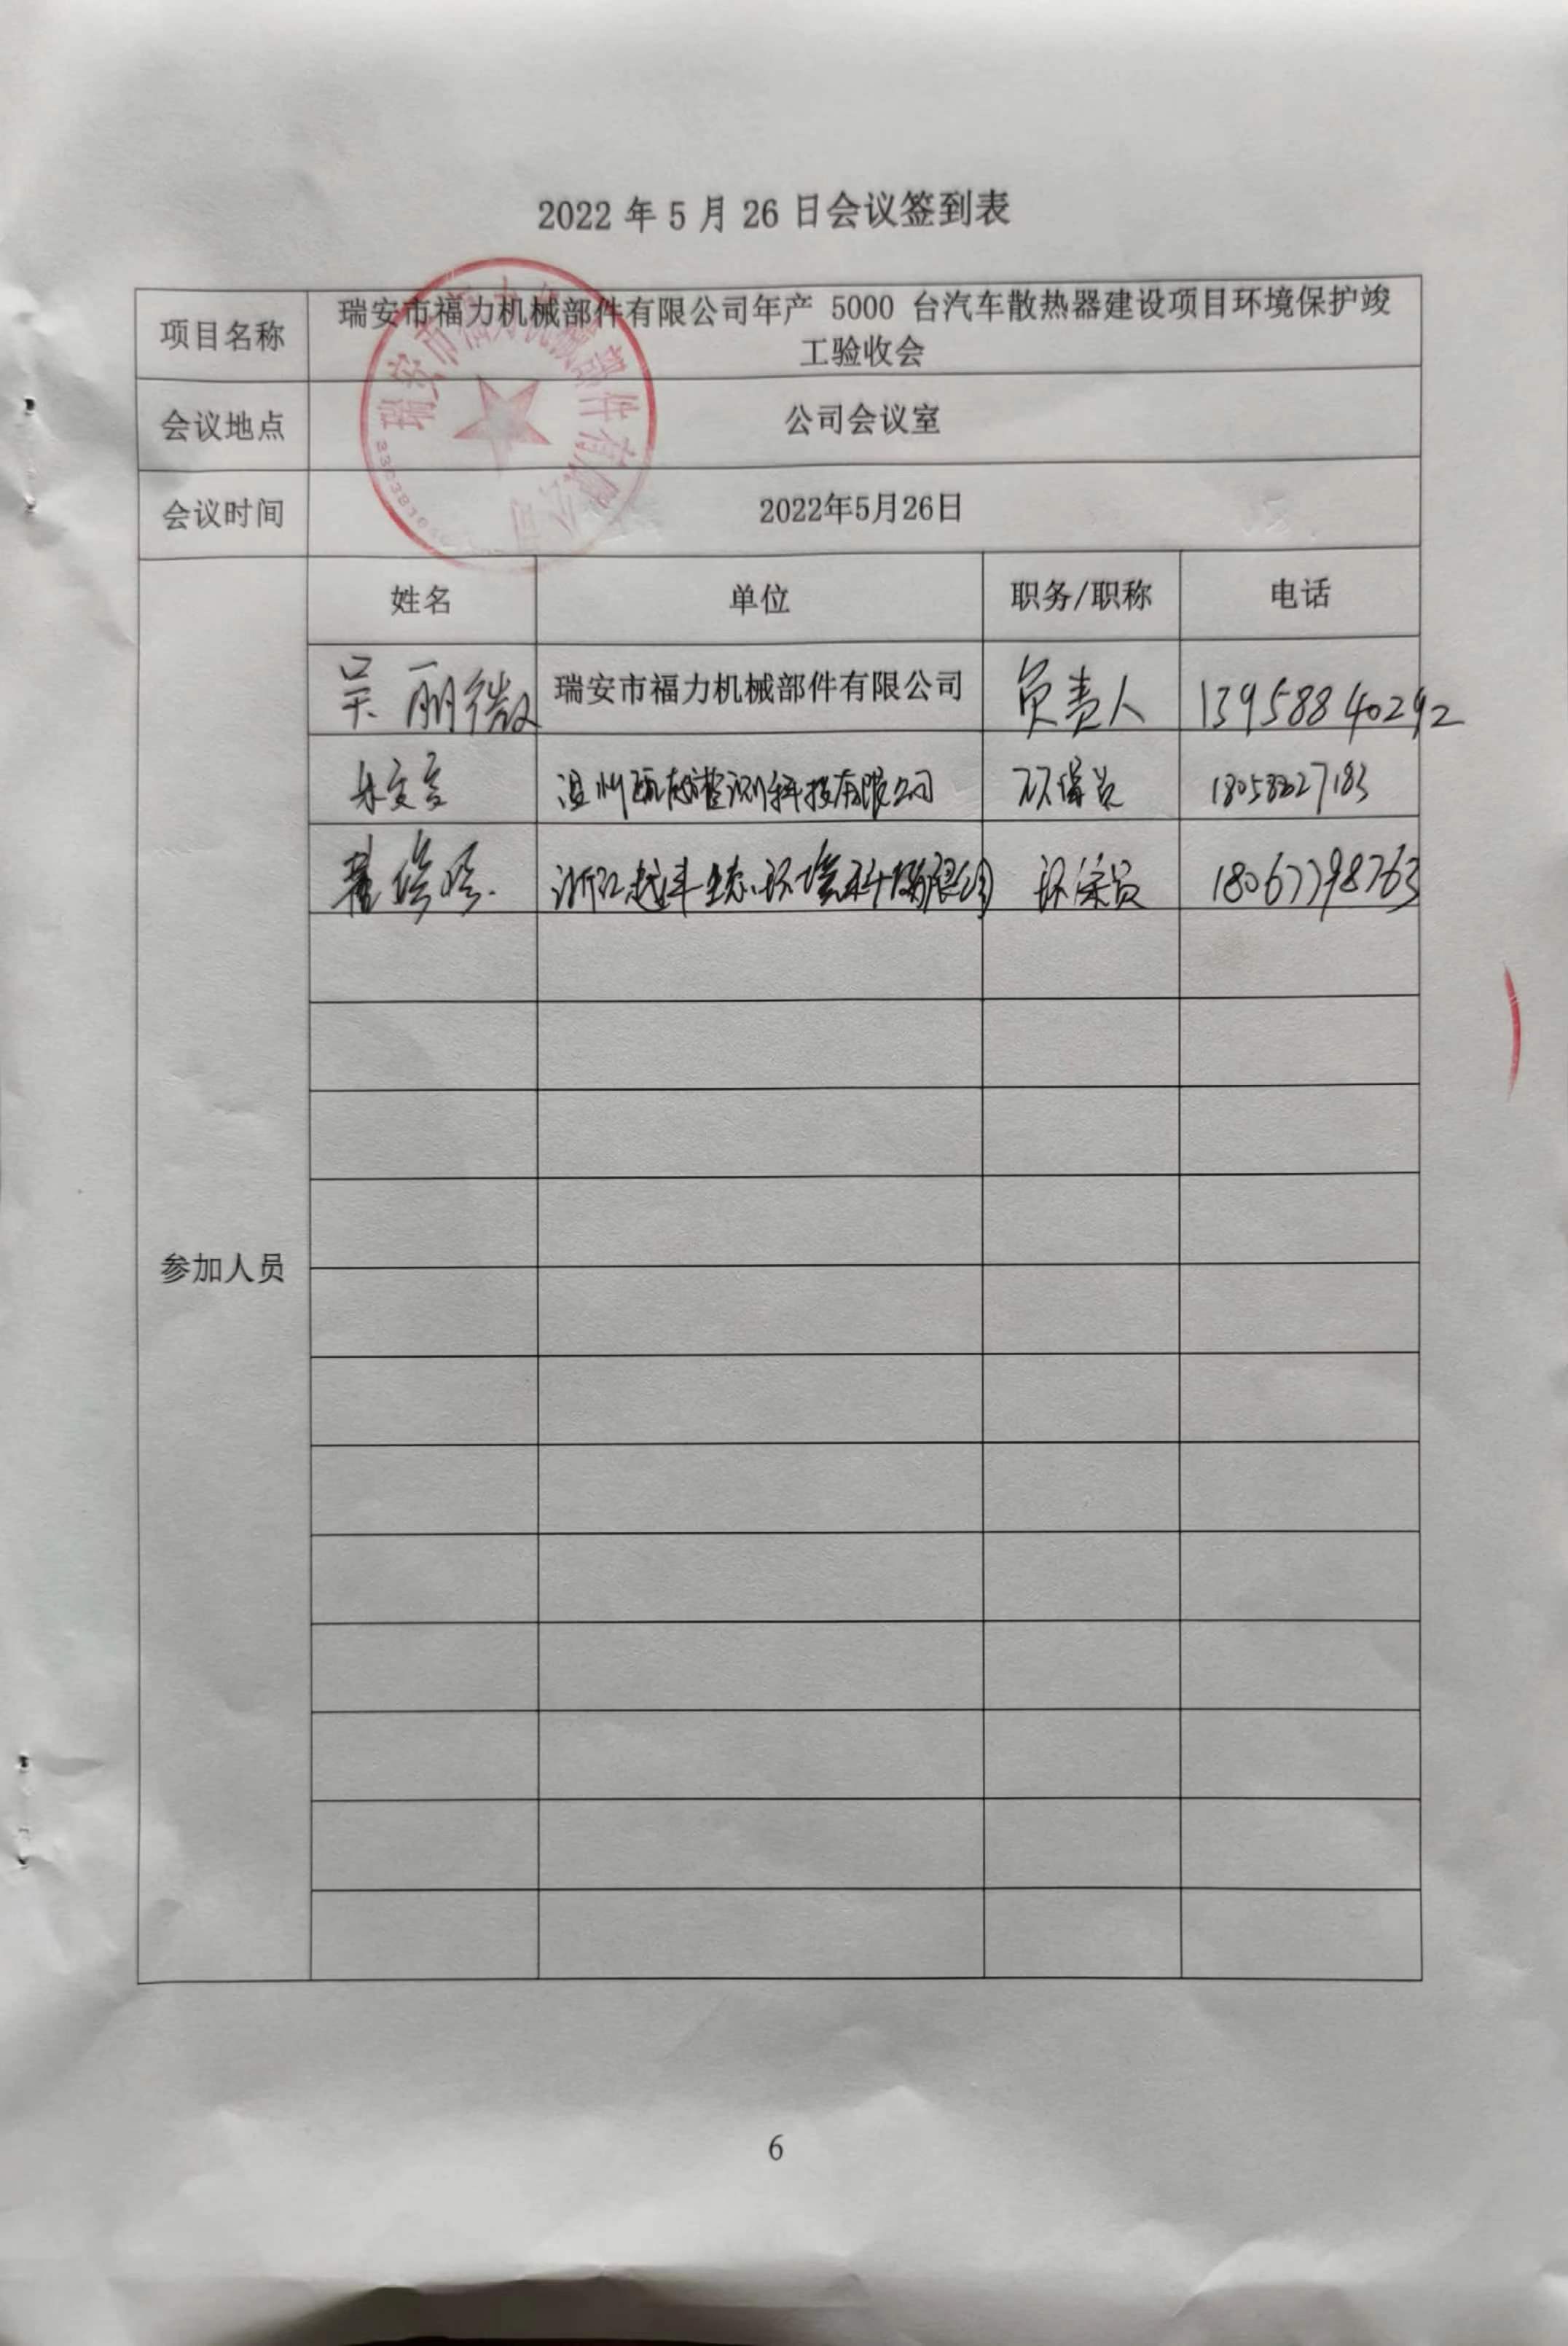 2022 年 5 月 26 日会议签到表
项目名称
瑞安市福力机械部件有限公司年产 5000 台汽车散热器建设项目环境保护竣
工验收会
会议地点
公司会议室
会议时间
2022年5月26日
瑞安市福力机械部件有限公司
姓名 单位 职务/职称 电话
吴丽微 瑞安市福力机械部件有限公司 负责人 13958840292
温州 检测科技有限公司 环保员
浙江 生态环境科技有限公司 环保员 18067798763
参加人员
6